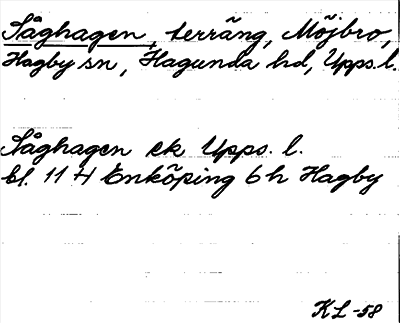 Såghagen, terräng, Möjbro,
Hagby sn, Hagunda hd, Upps. l.
Såghagen ek Upps. l.
bl. 11 H Enköping 6 h Hagby
KL -58